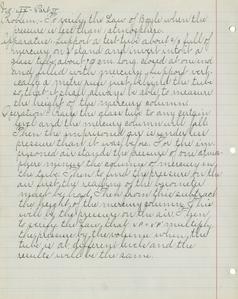 Ex. II - Part II
Problem:- To verify the Law of Boyle when the
pressure is less than atmosphere.
Apparatus:- Support a tub tube about 2/3 full of
mercury on a stand and invert into it a
glass tube about 1 cm long closed at one end
and filled with mercury. Support verti-
cally a metre rule just behind the tube
so that it shall always be able to measure
the height of the mercury column.
Operation:- Raise the glass tube to any certain
level and the mercury column will fall.
Then the imprisoned air is under less
pressure than it was before. For the im-
prisoned air stands the pressure of one atmos-
phere minus the column of mercury in
the tube. Then to find the pressure on the
air first, the reading of the barometer
must be had. Then from this subtract
the height of the mercury column; this
will be the pressure on the air. Then
to verify the law, that multiply
the pressure by the volume when the
tube is at different levels and the
results will be the same.